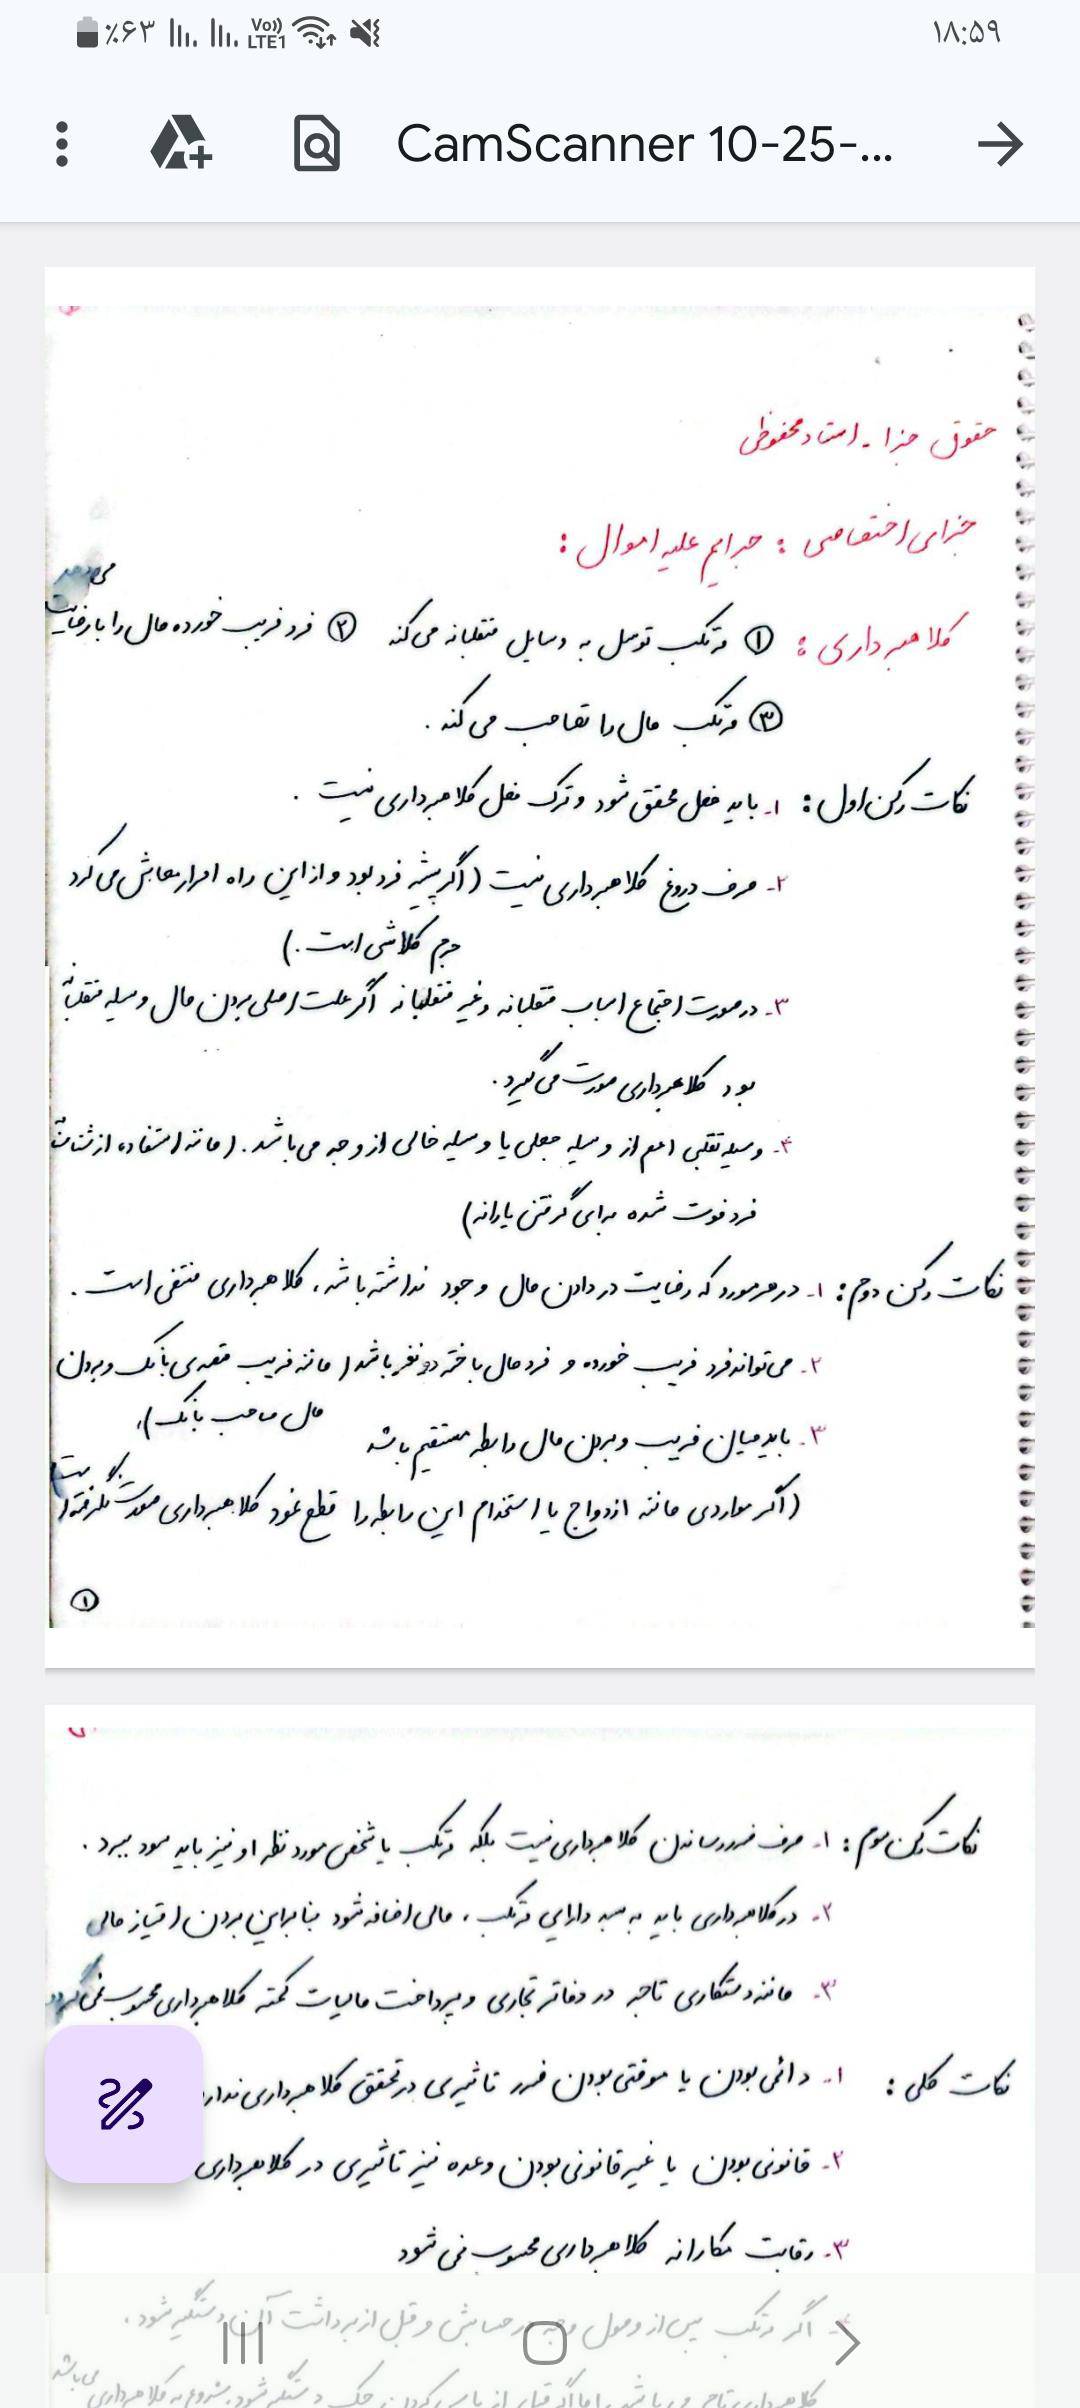 ۱۸:۵۹
٪۶۳
Vo)) LTE1
CamScanner 10-25-...
حقوق جزا - استاد محفوظی
جزای اختصاصی : جرایم علیه اموال :
کلاهبرداری : ① مرتکب توسل به وسایل متقلبانه می کند ② فرد فریب خورده مال را با رضایت می دهد
③ مرتکب مال را تصاحب می کند .
نکات رکن اول : ۱- باید فعل محقق شود و ترک فعل کلاهبرداری نیست .
۲- صرف دروغ کلاهبرداری نیست (اگر پیشه فرد بود و از این راه امرار معاش می کرد
جرم کلاشی است .)
۳- در صورت اجتماع اسباب متقلبانه و غیر متقلبانه اگر علت اصلی بردن مال وسیله متقلبانه
بود کلاهبرداری صورت می گیرد .
۴- وسیله تقلبی اعم از وسیله جعلی یا وسیله خالی از وجه می باشد . (مانند استفاده از
فرد فوت شده برای گرفتن یارانه)
نکات رکن دوم : ۱- در هر مورد که رضایت در دادن مال وجود نداشته باشد ، کلاهبرداری منتفی است .
۲- می تواند فرد فریب خورده و فرد مال باخته دو نفر باشد (مانند فریب متصدی بانک و بردن
مال صاحب بانک) .
۳- باید میان فریب و بردن مال رابطه مستقیم باشد
(اگر مواردی مانند ازدواج یا استخدام این رابطه را قطع نمود کلاهبرداری صورت نگرفته است
①
نکات رکن سوم : ۱- صرف ضرر رساندن کلاهبرداری نیست بلکه مرتکب یا شخص مورد نظر او نیز باید سود ببرد .
۲- در کلاهبرداری باید به سبد دارایی مرتکب ، مالی اضافه شود بنابراین بردن امتیاز مالی
۳- مانند دستکاری تاجر در دفاتر تجاری و پرداخت مالیات کمتر کلاهبرداری محسوب نمی گردد
نکات کلی : ۱- دائمی بودن یا موقتی بودن ضرر تاثیری در تحقق کلاهبرداری ندارد
۲- قانونی بودن یا غیر قانونی بودن وعده نیز تاثیری در کلاهبرداری
۳- رقابت مکارانه کلاهبرداری محسوب نمی شود
۴- اگر مرتکب پس از وصول وجه در حسابش و قبل از برداشت آن دستگیر شود ،